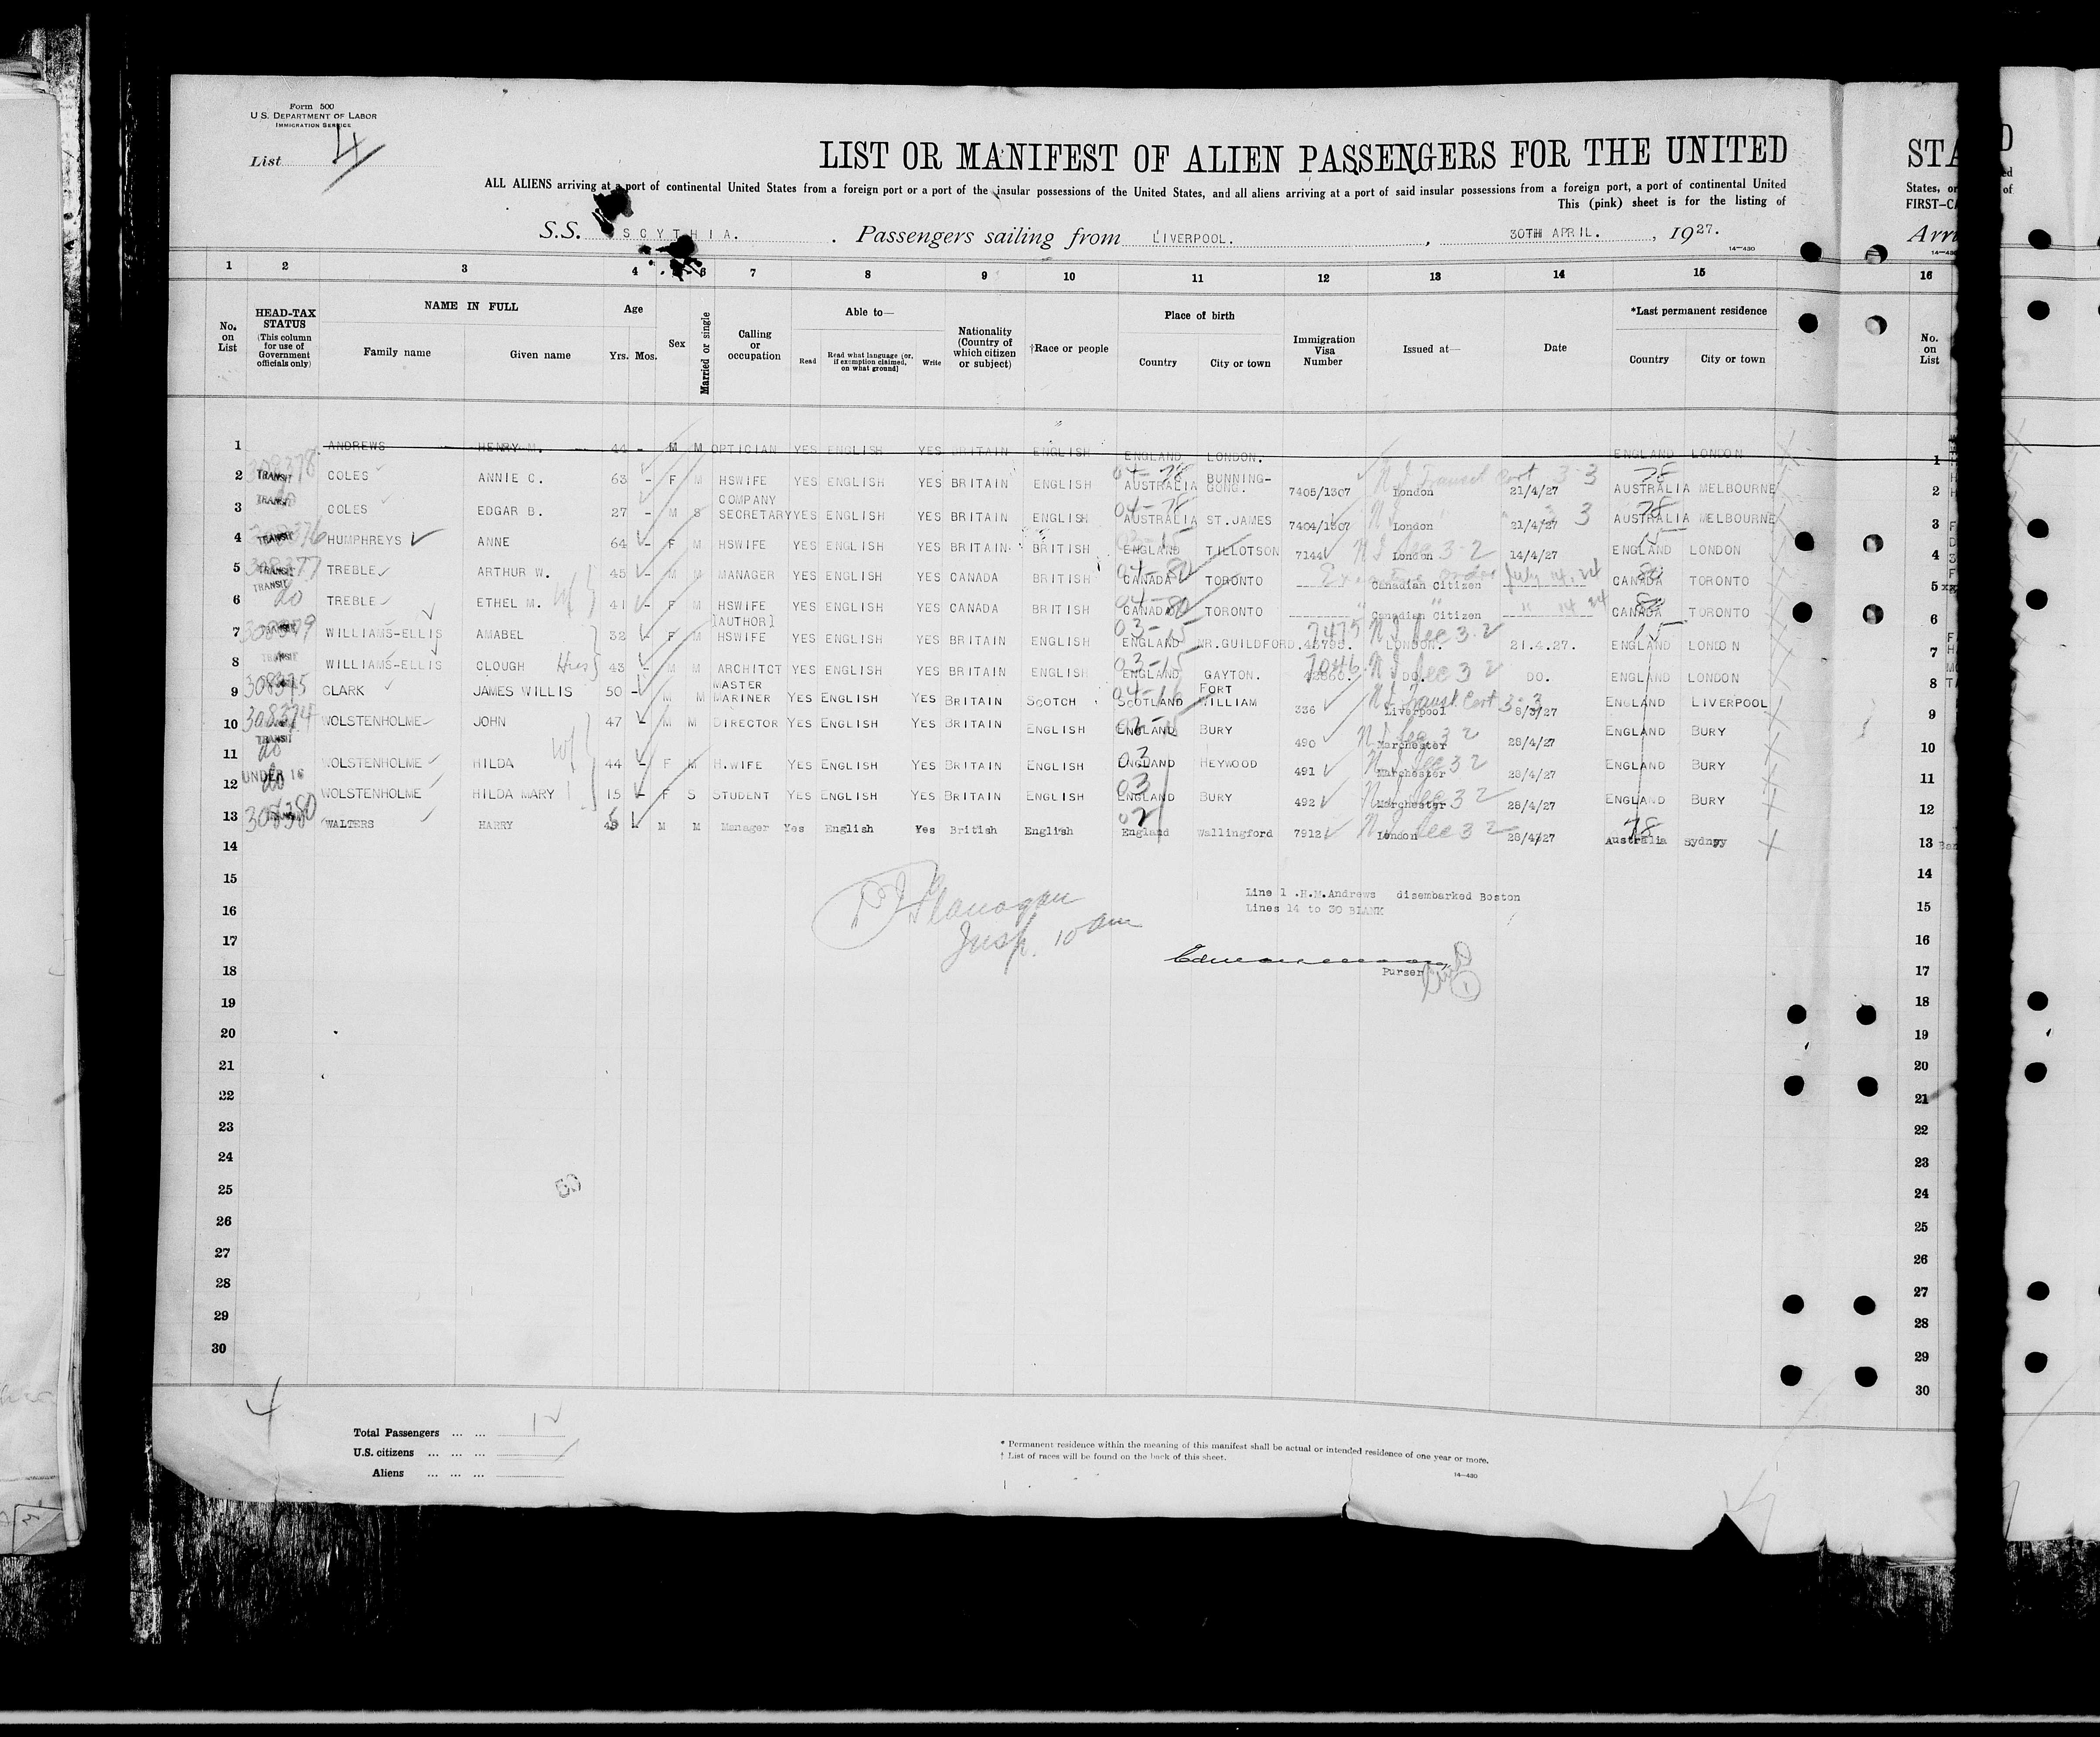 Form 500
U.S. DEPARTMENT OF LABOR
IMMIGRATION SERVICE
List 4
LIST OR MANIFEST OF ALIEN PASSENGERS FOR THE UNITED
ALL ALIENS arriving at a port of continental United States from a foreign port or a port of the insular possessions of the United States, and all aliens arriving at a port of said insular possessions from a foreign port, a port of continental United
This (pink) sheet is for the listing of
S.S. SCYTHIA. Passengers sailing from LIVERPOOL. , 30TH APRIL. , 1927.
14—430
1 2 3 4 6 7 8 9 10 11 12 13 14 15
No. on List
HEAD-TAX STATUS (This column for use of Government officials only)
NAME IN FULL
Family name Given name
Age
Yrs. Mos.
Sex
Married or single
Calling or occupation
Able to—
Read Read what language [or, if exemption claimed, on what ground] Write
Nationality (Country of which citizen or subject)
†Race or people
Place of birth
Country City or town
Immigration Visa Number
Issued at—
Date
*Last permanent residence
Country City or town
1 ANDREWS HENRY M. 44 - M M OPTICIAN YES ENGLISH YES BRITAIN ENGLISH ENGLAND LONDON. ENGLAND LONDON
2 308378 TRANSIT COLES ANNIE C. 63 - F M HSWIFE YES ENGLISH YES BRITAIN ENGLISH 04-78 AUSTRALIA BUNNING-GONG. 7405/1307 London 21/4/27 78 AUSTRALIA MELBOURNE
3 TRANSIT COLES EDGAR B. 27 - M S COMPANY SECRETARY YES ENGLISH YES BRITAIN ENGLISH 04-78 AUSTRALIA ST.JAMES 7404/1307 London 21/4/27 78 AUSTRALIA MELBOURNE
4 TRANSIT HUMPHREYS ANNE 64 - F M HSWIFE YES ENGLISH YES BRITAIN BRITISH ENGLAND TILLOTSON 7144 London 14/4/27 ENGLAND LONDON
5 308377 TRANSIT TREBLE ARTHUR W. 45 - M M MANAGER YES ENGLISH YES CANADA BRITISH 04-80 CANADA TORONTO Canadian Citizen July 14, 24 80 CANADA TORONTO
6 TRANSIT do TREBLE ETHEL M. 41 - F M HSWIFE YES ENGLISH YES CANADA BRITISH 04-80 CANADA TORONTO Canadian Citizen " 14 24 80 CANADA TORONTO
7 308379 WILLIAMS-ELLIS AMABEL 32 - F M [AUTHOR] HSWIFE YES ENGLISH YES BRITAIN ENGLISH 03-15 ENGLAND NR.GUILDFORD. 7475 LONDON. 21.4.27. 15 ENGLAND LONDON
8 TRANSIT WILLIAMS-ELLIS CLOUGH 43 - M M ARCHITCT YES ENGLISH YES BRITAIN ENGLISH 03-15 ENGLAND GAYTON. 7046 DO. DO. ENGLAND LONDON
9 308375 CLARK JAMES WILLIS 50 - M M MASTER MARINER YES ENGLISH YES BRITAIN SCOTCH SCOTLAND FORT WILLIAM 336 Liverpool 8/3/27 ENGLAND LIVERPOOL
10 308374 WOLSTENHOLME JOHN 47 - M M DIRECTOR YES ENGLISH YES BRITAIN ENGLISH ENGLAND BURY 490 Manchester 28/4/27 ENGLAND BURY
11 TRANSIT do WOLSTENHOLME HILDA 44 - F M H.WIFE YES ENGLISH YES BRITAIN ENGLISH 03 ENGLAND HEYWOOD 491 Manchester 28/4/27 ENGLAND BURY
12 UNDER 16 do WOLSTENHOLME HILDA MARY 15 - F S STUDENT YES ENGLISH YES BRITAIN ENGLISH 03 ENGLAND BURY 492 Manchester 28/4/27 ENGLAND BURY
13 308380 WALTERS HARRY M M Manager Yes English Yes British English 02 England Wallingford 7912 London 28/4/27 78 Australia Sydney
14
15
16
17
18
19
20
21
22
23
24
25
26
27
28
29
30
Line 1 .H.M.Andrews disembarked Boston
Lines 14 to 30 BLANK
Flanagan
Insp. 10 am
Purser
4
Total Passengers ... ... 12
U.S. citizens ... ... ...
Aliens ... ... ...
* Permanent residence within the meaning of this manifest shall be actual or intended residence of one year or more.
† List of races will be found on the back of this sheet.
14—430
STA
States, or
FIRST-CA
Arri
16
No. on List
1
2
3
4
5
6
7
8
9
10
11
12
13
14
15
16
17
18
19
20
21
22
23
24
25
26
27
28
29
30